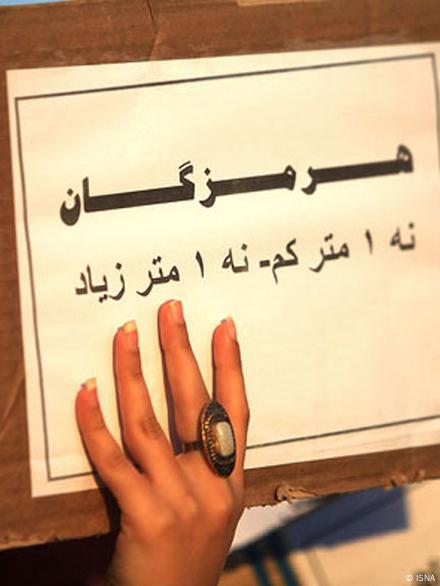 هرمزگان
نه ۱ متر کم- نه ۱ متر زیاد
© ISNA